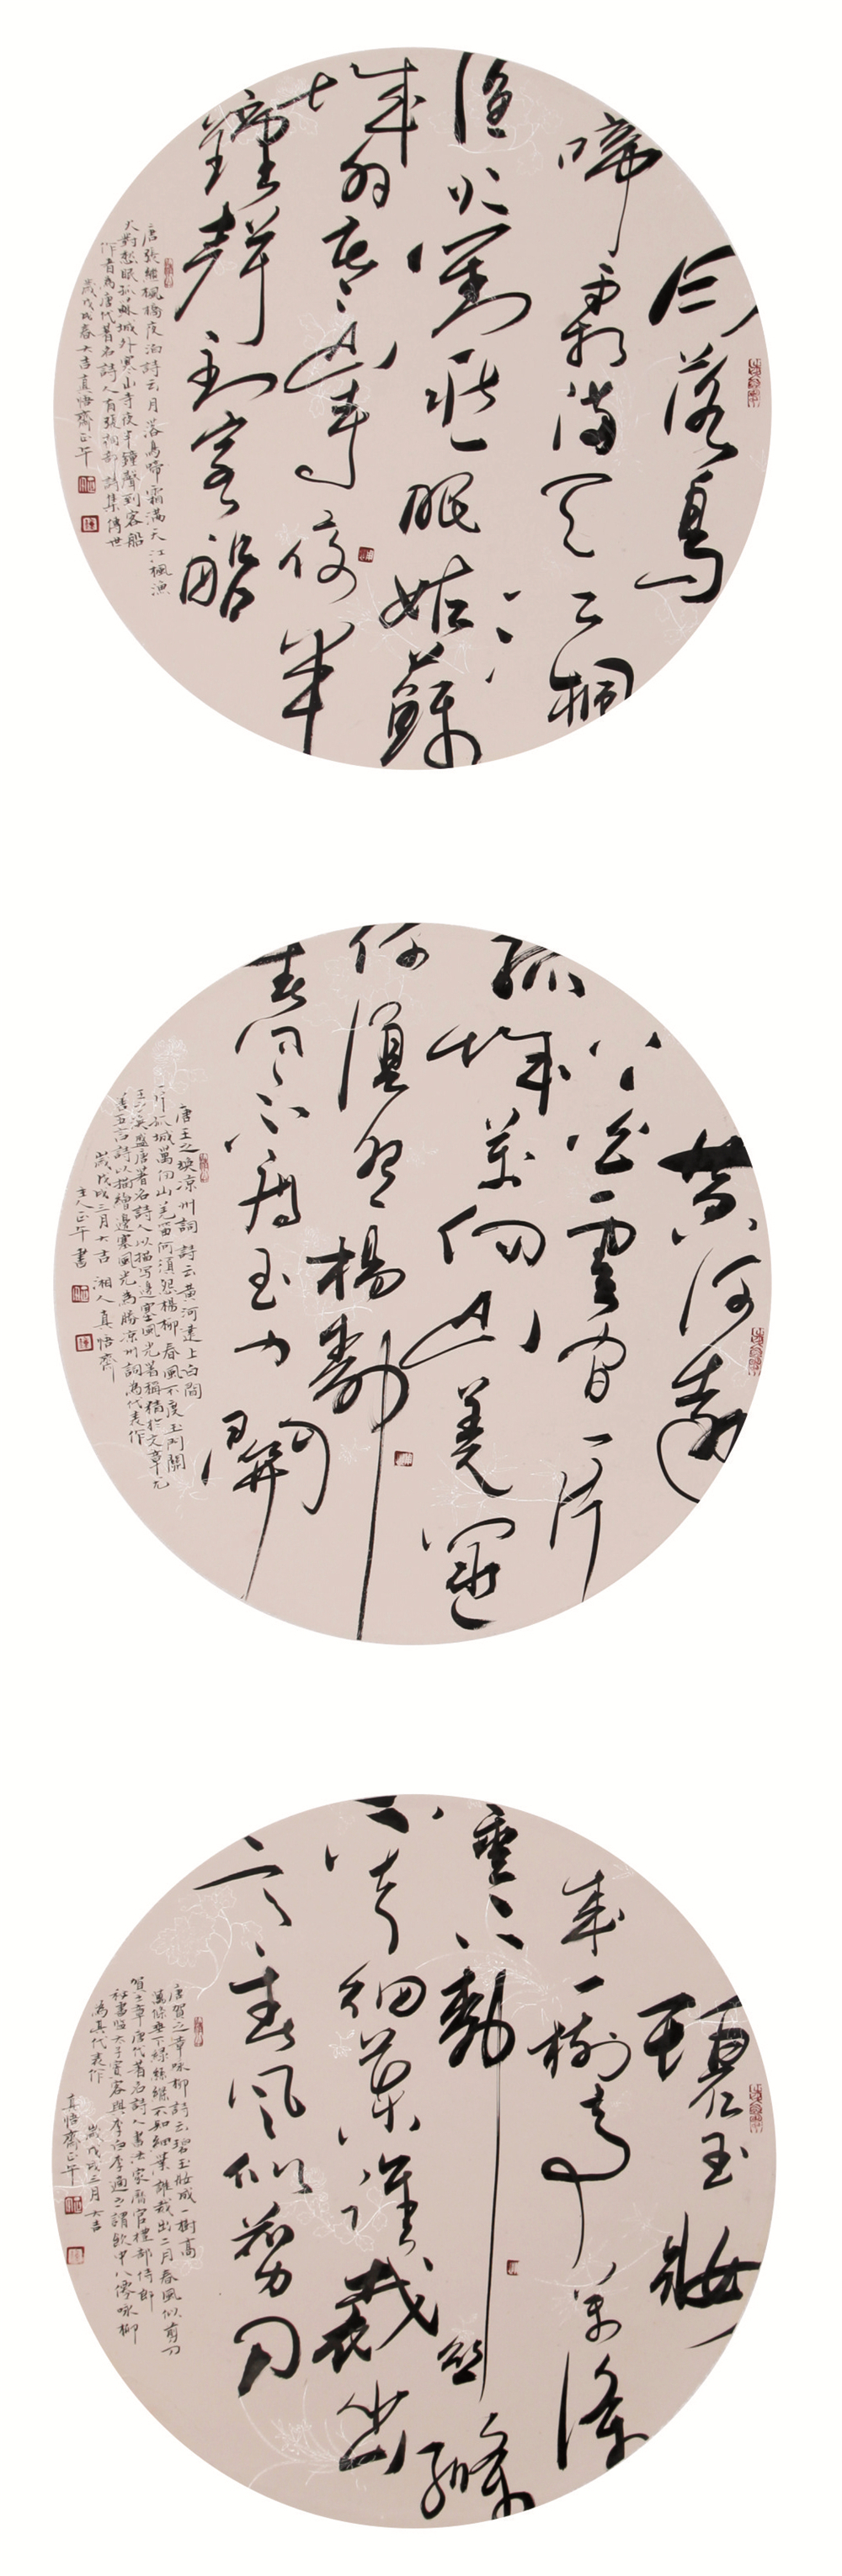 月落烏
啼霜滿天江楓
漁火對愁眠姑蘇
城外寒山寺夜半
鐘聲到客船
唐張繼楓橋夜泊詩云月落烏啼霜滿天江楓漁
火對愁眠孤蘇城外寒山寺夜半鐘聲到客船
作者為唐代著名詩人有張祠部詩集傳世
歲戊戌春大吉真悟齋正午
黃河遠
上白雲間一片
孤城萬仞山羌笛
何須怨楊柳
春風不度玉門關
唐王之渙凉州詞詩云黃河遠上白間
一片孤城萬仞山羌笛何須怨楊柳春風不度玉門關
王之渙盛唐著名詩人以描写邊塞風光著稱精於文章尤
善五言詩以描繪邊塞風光為勝凉州詞為代表作
歲戊戌三月大吉湘人真悟齋
主人正午書
碧玉妝
成一樹高萬條
垂下綠絲絛
不知細葉誰裁出
二月春風似剪刀
唐賀之章咏柳詩云碧玉妝成一樹高
萬條垂下綠絲絛不知細葉誰裁出二月春風似剪刀
賀之章唐代著名詩人書法家歷官禮部侍郎
秘書監太子賓客與李白李適之謂飲中八僊咏柳
為其代表作
歲戊戌三月大吉
真悟齋正午